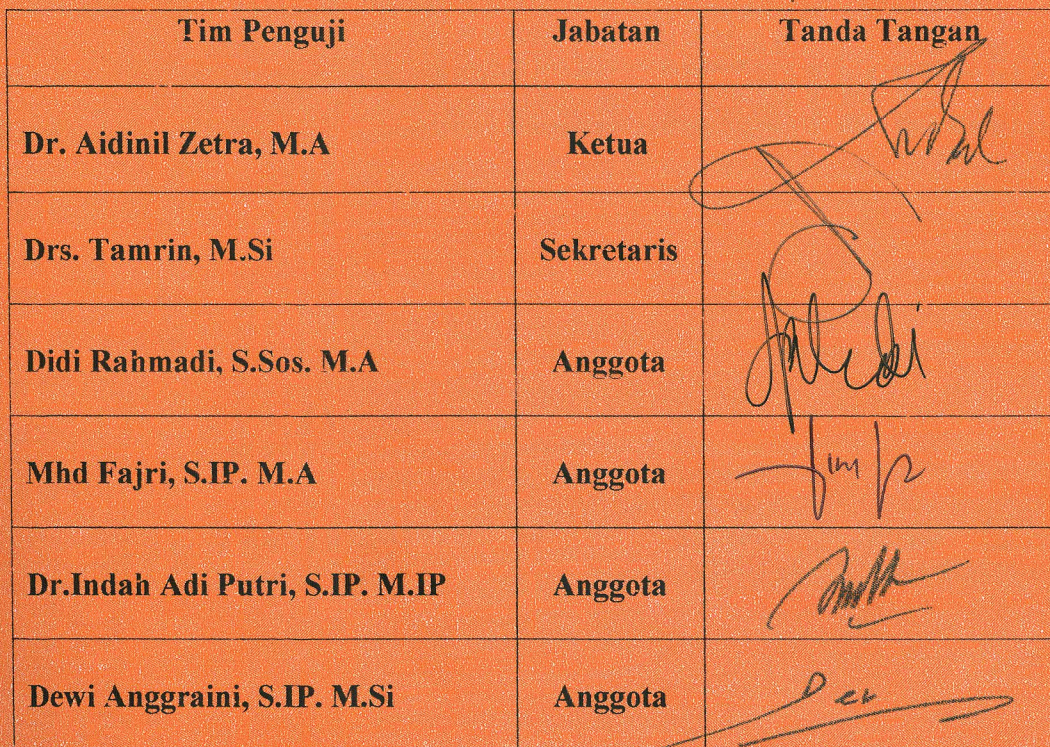 Tim Penguji Jabatan Tanda Tangan
Dr. Aidinil Zetra, M.A Ketua
Drs. Tamrin, M.Si Sekretaris
Didi Rahmadi, S.Sos. M.A Anggota
Mhd Fajri, S.IP. M.A Anggota
Dr.Indah Adi Putri, S.IP. M.IP Anggota
Dewi Anggraini, S.IP. M.Si Anggota